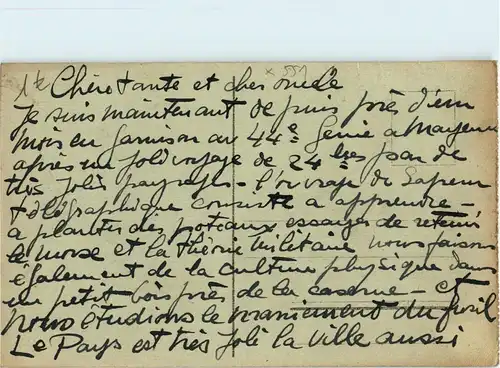 1k × 551
Chère tante et cher oncle
Je suis maintenant depuis près d'un
mois en garnison au 44e Génie a Mayenne
après un joli voyage de 24 hres par de
très jolis paysages - l'ouvrage du Sapeur
télégraphique consiste a apprendre -
a planter des poteaux essayer de retenir
le morse et la théorie militaire nous faisons
également de la culture physique dans
un petit bois près de la caserne - et
nous étudions le maniement du fusil
Le Pays est très joli la ville aussi